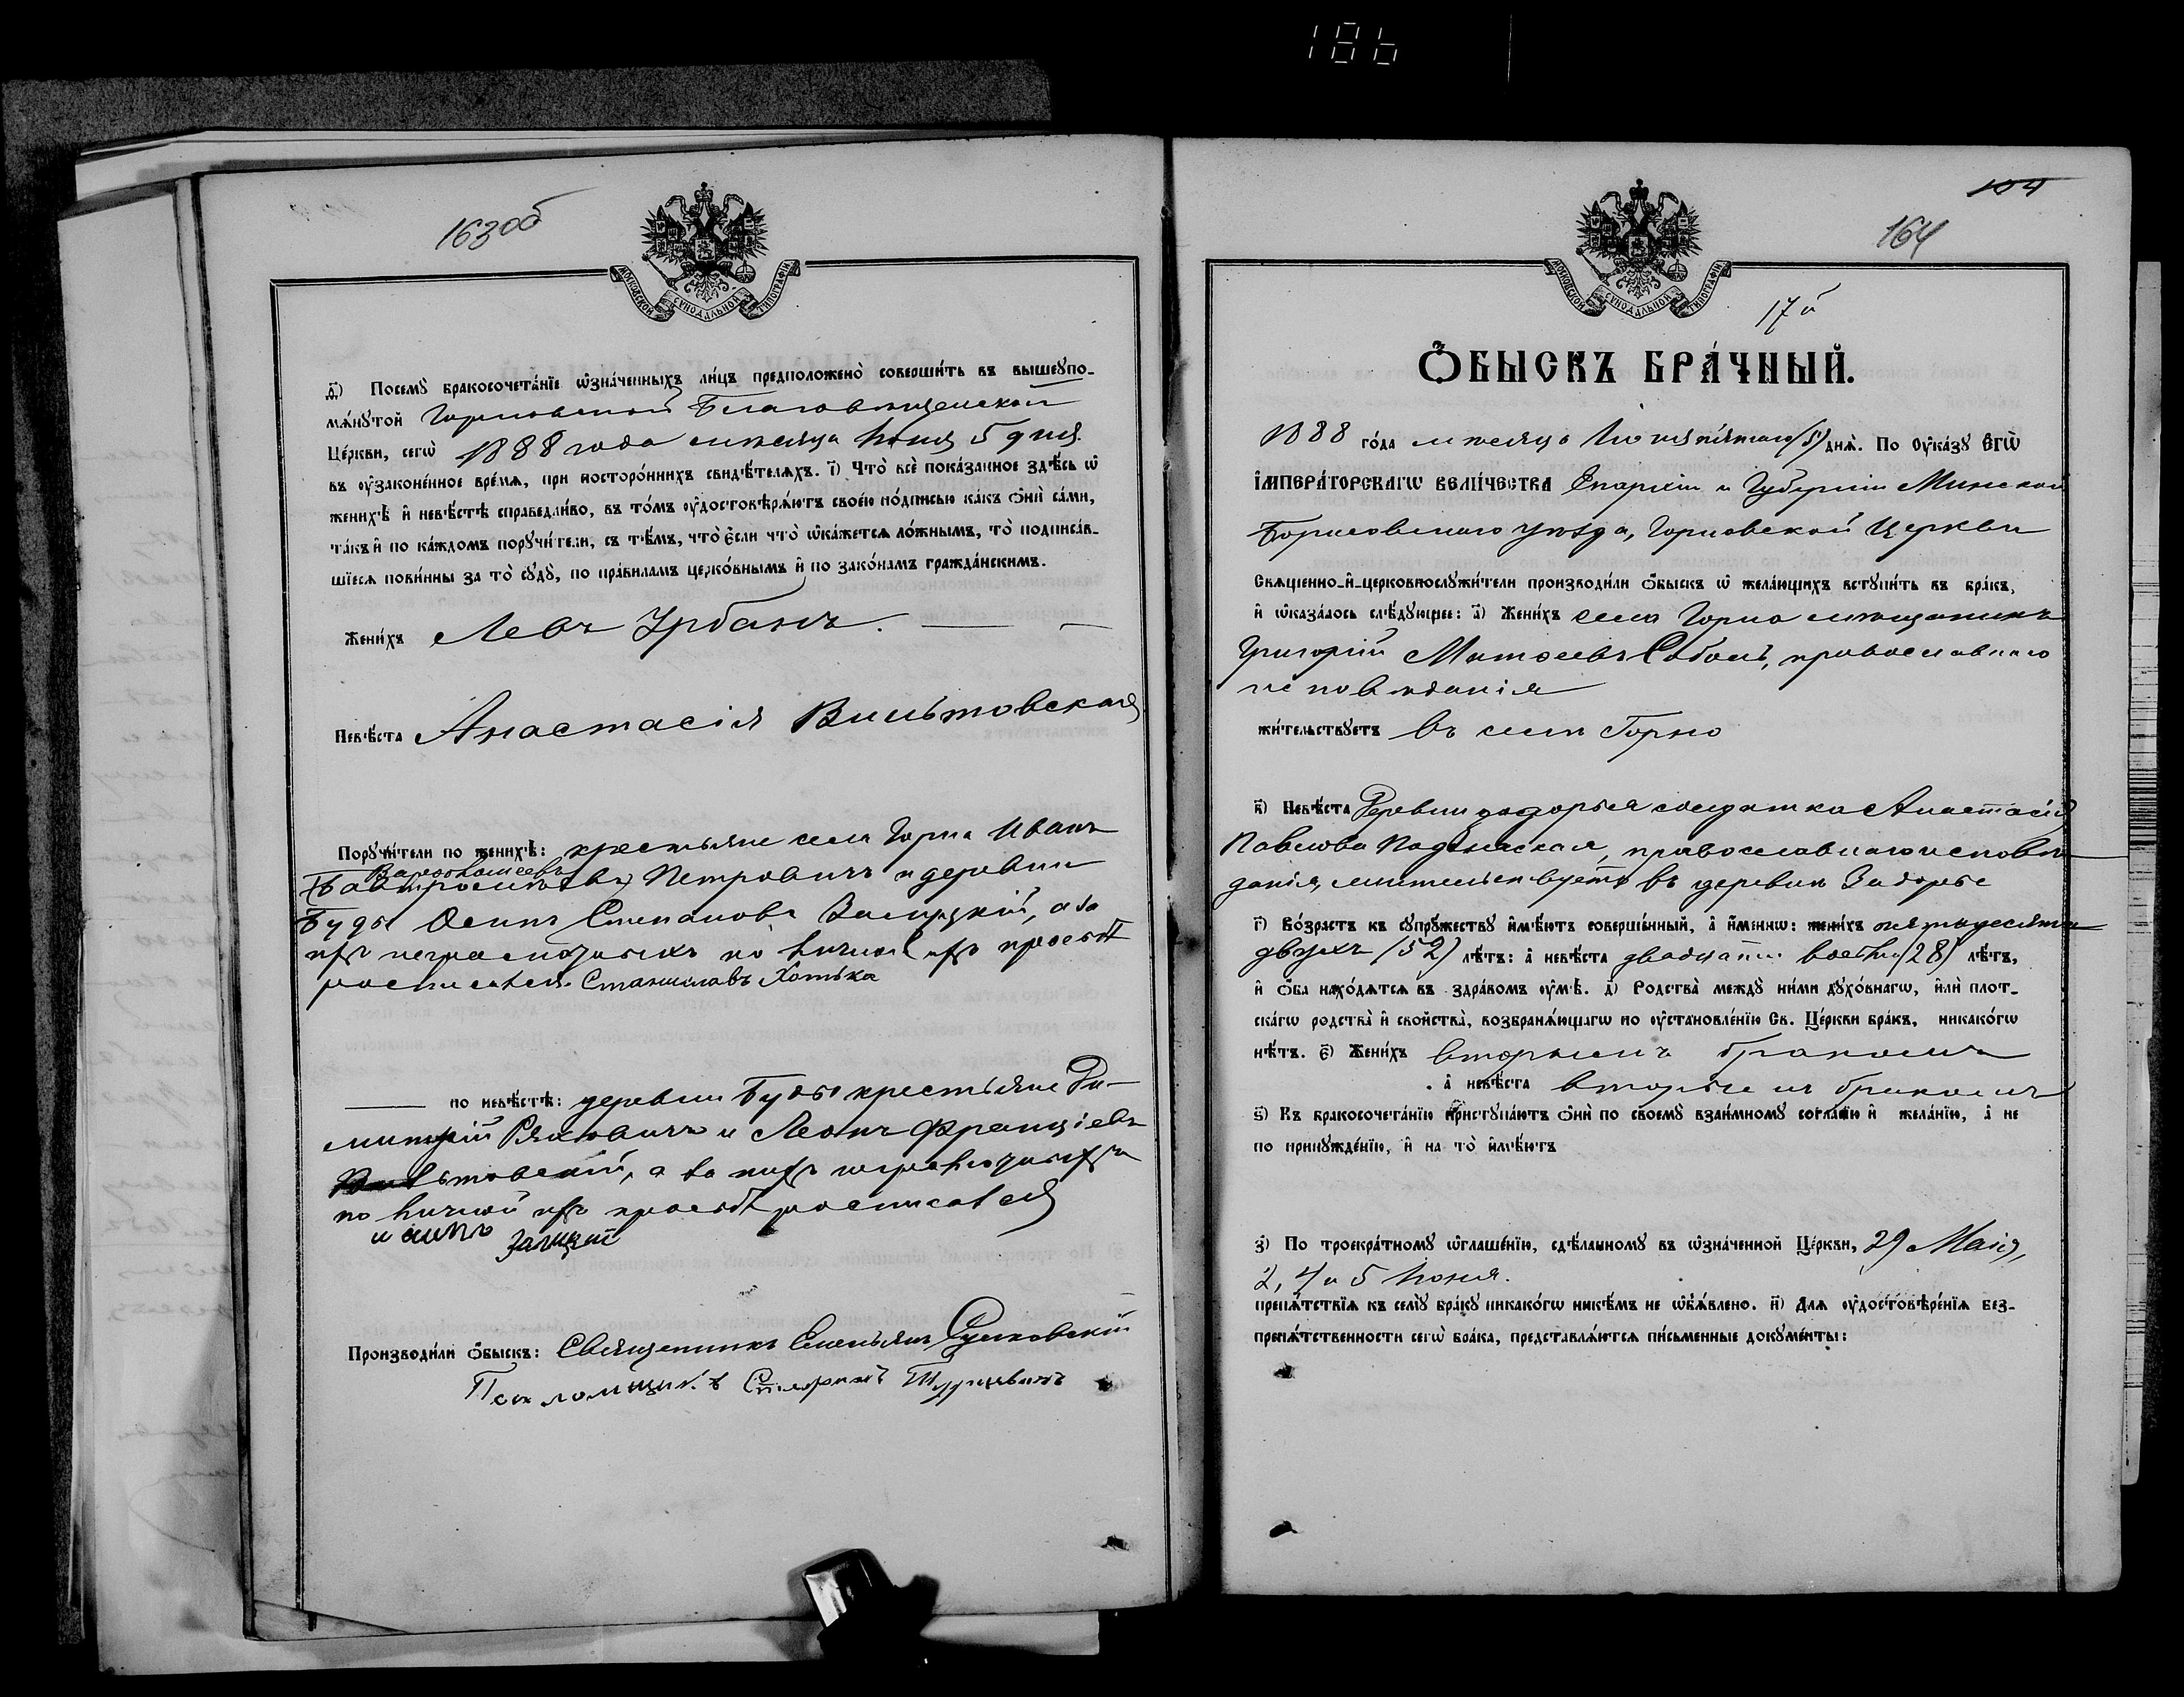 186
163об
МОСКОВСКОЙ СУНОДАЛЬНОЙ ТИПОГРАФІИ
д҃) Посемꙋ бракосочета́нїе ѡ҆зна́ченныхъ ли́цъ предположено̀ соверши́ть въ вышеꙋпо-
мѧ́нꙋтой Горновской Благовѣщенской
Це́ркви, сегѡ̀ 1888 года мѣсяца Іюня 5 дня
въ ᲂу҆законе́нное вре́мѧ, при посторо́ннихъ свидѣ́телѧхъ. і҃) Что̀ всѐ пока́занное здѣ́сь ѡ҆
женихѣ̀ и҆ невѣ́стѣ справедли́во, въ то́мъ ᲂу҆достовѣрѧ́ютъ свое́ю по́дписью ка́къ ѻ҆нѝ са́ми,
та́къ и҆ по ка́ждомъ порꙋчи́тели, съ тѣ́мъ, что̀ є҆́сли что̀ ѡ҆ка́жетсѧ ло́жнымъ, то̀ подписа́в-
шїесѧ пови́нны за то̀ сꙋдꙋ̀, по пра́виламъ церко́внымъ и҆ по зако́намъ гражда́нскимъ.
Жени́хъ Левъ Урбанъ.
Невѣ́ста Анастасія Вильтовская
Порꙋчи́тели по женихѣ̀: крестьяне села Горна Иванъ
Варфоломеевъ
Петровичъ и деревни
Буды Осипъ Степановъ Залуцкій, а за
ихъ неграмотныхъ по личной ихъ просьбѣ
росписался. Станиславъ Хотька
по невѣ́стѣ: деревни Буды крестьяне Ди-
митрій и Леонъ Францієвъ
Вильтовскій, а за нихъ неграмотныхъ
по личной ихъ просьбѣ росписался
Производи́ли ѻ҆́быскъ: Священникъ Емельянъ Сулковскій
Псаломщикъ
104
164
МОСКОВСКОЙ СУНОДАЛЬНОЙ ТИПОГРАФІИ
17й
Ѻ҆́БЫСКЪ БРА́ЧНЫЙ.
1888 го́да мѣсяца Іюня пятаго (5) днѧ̀. По ᲂу҆ка́зꙋ Є҆ГѠ̀
І҆МПЕРА́ТОРСКАГѠ ВЕЛИ́ЧЕСТВА Епархіи и Губерніи Минской
Борисовскаго уѣзда, Горновской Церкви
Свѧще́нно-и҆-церковнослꙋжи́тели производи́ли ѻ҆́быскъ ѡ҆ жела́ющихъ встꙋпи́ть въ бра́къ,
и҆ ѡ҆каза́лось слѣ́дꙋющее: а҃) Жени́хъ села Горна мѣщанинъ
Григорій Матѳеевъ Соболь, православнаго
исповѣданія
жи́тельствꙋетъ въ селѣ Горно
в҃) Невѣ́ста Деревни Задорья солдатка Анастасія
Павлова православнаго исповѣ-
данія, жительствуетъ въ деревнѣ Задорье
г҃) Во́зрастъ къ сꙋпрꙋ́жествꙋ и҆мѣ́ютъ соверше́нный, а҆ и҆́меннѡ: жени́хъ пятидесяти
двухъ (52) лѣ́тъ: а҆ невѣ́ста двадцати восьми (28) лѣ́тъ,
и҆ ѻ҆́ба нахо́дѧтсѧ въ здра́вомъ ᲂу҆мѣ̀. д҃) Родства̀ междꙋ̀ ни́ми дꙋхо́внагѡ, и҆лѝ плот-
ска́гѡ родства̀ и҆ сво́йства, возбранѧ́ющагѡ по ᲂу҆становле́нїю Св. Це́ркви бра́къ, никако́гѡ
нѣ́тъ. є҃) Жени́хъ вторымъ бракомъ
а҆ невѣ́ста вторымъ бракомъ
ѕ҃) Къ бракосочета́нїю пристꙋпа́ютъ ѻ҆нѝ по своемꙋ̀ взаи́мномꙋ согла́сїю и҆ жела́нїю, а҆ не
по принꙋжде́нїю, и҆ на то̀ и҆мѣ́ютъ
з҃) По троекра́тномꙋ ѡ҆глаше́нїю, сдѣ́ланномꙋ въ ѡ҆зна́ченной Це́ркви, 29 Маія,
2, 4 и 5 Іюня.
препѧ́тствїѧ къ семꙋ̀ бра́кꙋ никако́гѡ никѣ́мъ не ѡ҆б̾ѧ́влено. и҃) Длѧ ᲂу҆достовѣре́нїѧ без-
препѧ́тственности сегѡ̀ бра́ка, представлѧ́ютсѧ пи́сьменные докꙋме́нты: